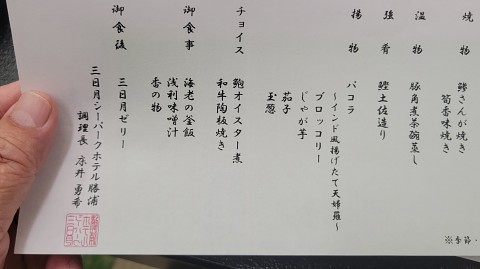 焼物
鯵さんが焼き
筍香味焼き
温物
豚角煮茶碗蒸し
強肴
鰹土佐造り
揚物
パコラ
〜インド風揚げたて天婦羅〜
ブロッコリー
じゃが芋
茄子
玉葱
チョイス
鮑オイスター煮
和牛陶板焼き
御食事
海老の釜飯
浅利味噌汁
香の物
御食後
三日月ゼリー
三日月シーパークホテル勝浦
調理長 庄井勇希
※季節・